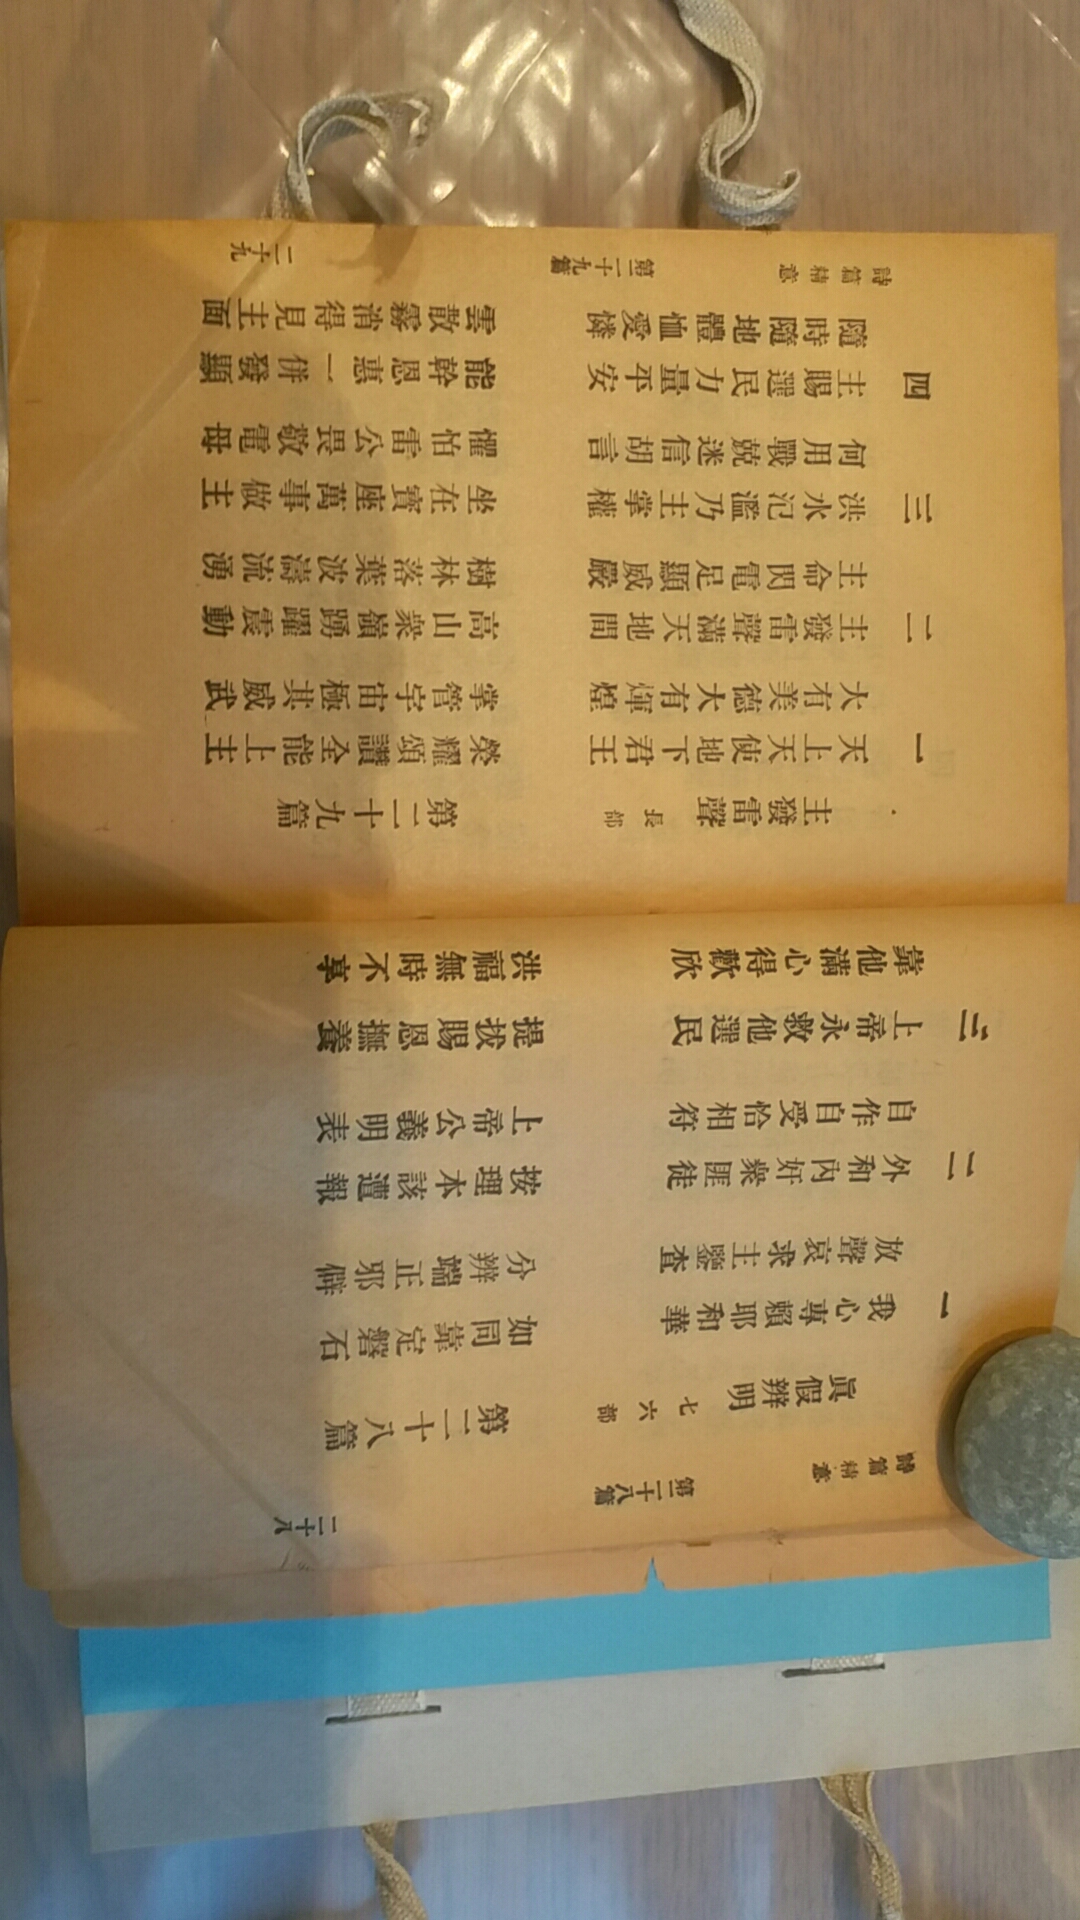 詩篇精意 第二十八篇 二十八
眞假辨明 七六部 第二十八篇
一 我心專賴耶和華 如同靠定磐石
放聲哀求主鑒查 分辨端正邪僻
二 外和內奸衆匪徒 按理本該遭報
自作自受恰相符 上帝公義明表
三 上帝永救他選民 提拔賜恩撫養
靠他滿心得歡欣 洪福無時不享
主發雷聲 長部 第二十九篇
一 天上天使地下君王 榮耀頌讚全能上主
大有美德大有輝煌 掌管宇宙極其威武
二 主發雷聲滿天地間 高山衆嶺踴躍震動
主命閃電足顯威嚴 樹林落葉波濤流湧
三 洪水氾濫乃主掌權 坐在寶座萬事做主
何用戰兢迷信胡言 懼怕雷公畏敬電母
四 主賜選民力量平安 能幹恩惠一併發顯
隨時隨地體恤愛憐 雲散霧消得見主面
詩篇精意 第二十九篇 二十九